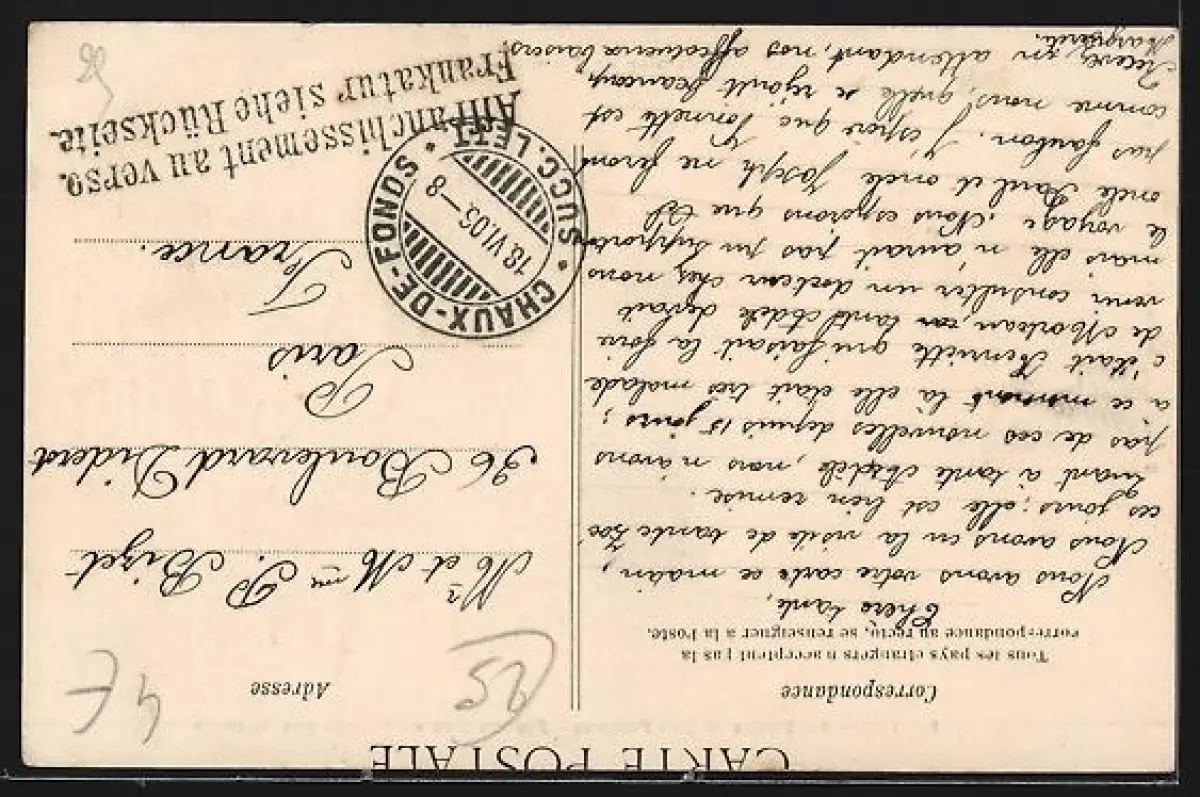 CARTE POSTALE
Correspondance
Tous les pays étrangers n'acceptent pas la
correspondance au recto, se renseigner à la Poste.
Chère tante,
Nous avons votre carte ce matin,
Nous avons eu la visite de tante Zoé
ces jours; elle est bien remise.
Quant à tante Adèle, nous n'avons
pas de ces nouvelles depuis 15 jours;
à ce moment là elle était très malade
c'était Henriette qui faisait la foire
de Morteau, tante Adèle devait
venir consulter un docteur chez nous
mais elle n'aurait pas pu supporter
le voyage. Nous espérons que
oncle Paul et oncle Joseph ne feront
pas faubon. J'espère que Ponnette est
comme nous, qu'elle se réjouit beaucoup
Recevez, en attendant, nos affectueux baisers
Marguerite.
Adresse
25
4 F
Mr et Mme P. Bizet
36 Boulevard Diderot
Paris
France.
CHAUX-DE-FONDS * SUCC. LETT. *
18.VI.06.-8
Affranchissement au verso.
Frankatur siehe Rückseite.